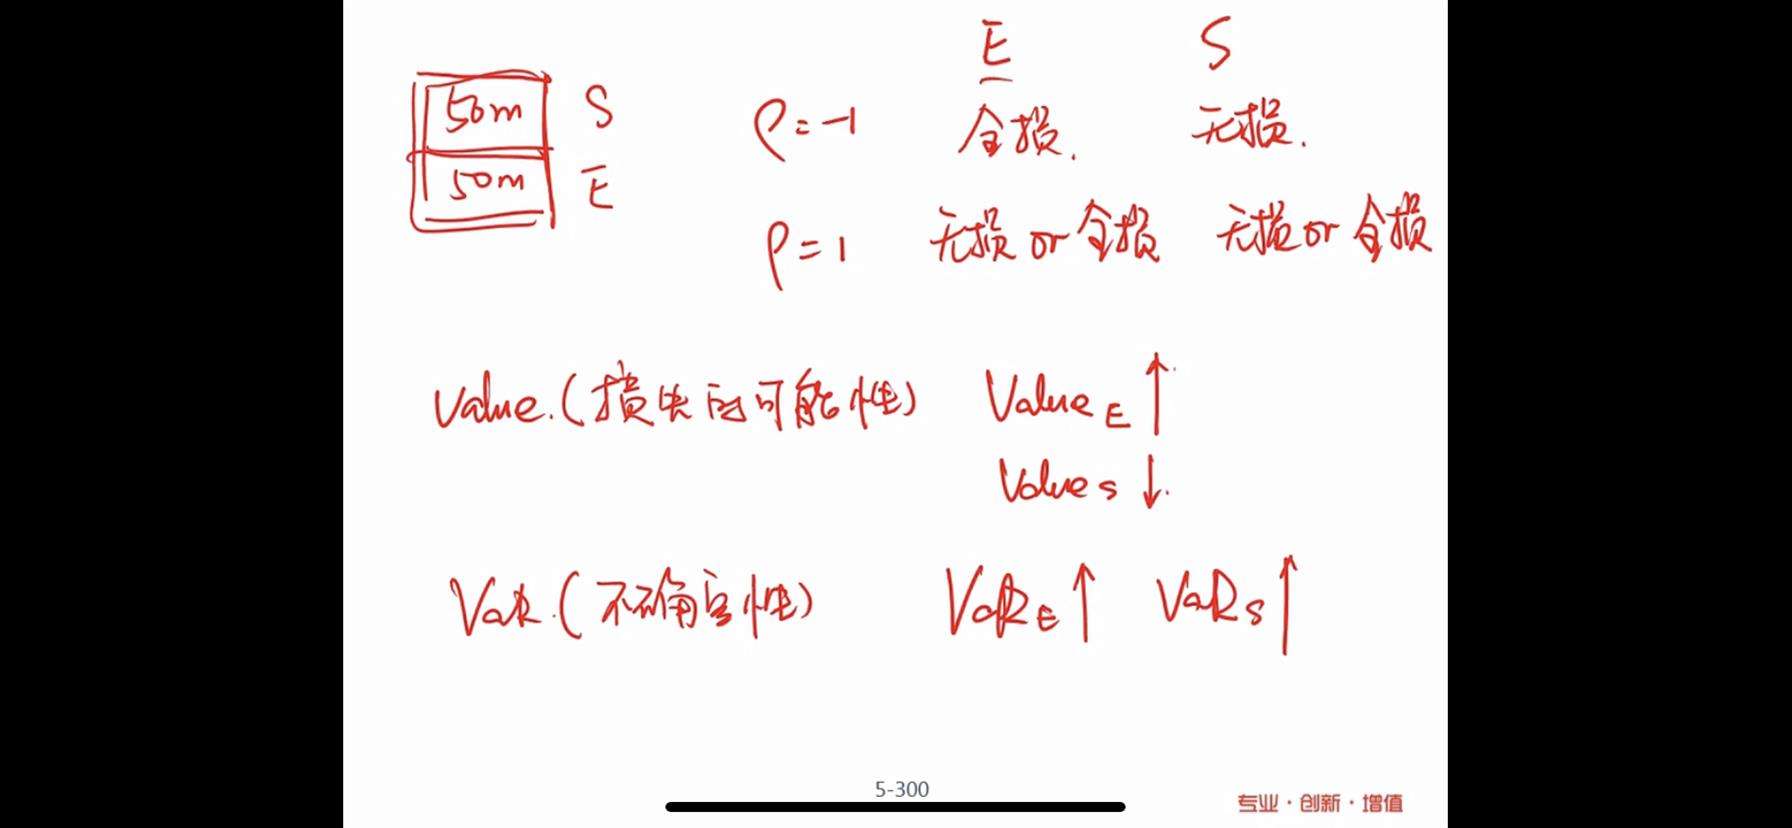 E S
50m S
50m E
ρ=-1 全损. 无损.
ρ=1 无损 or 全损 无损 or 全损
Value.(损失的可能性) Value E ↑
Value S ↓.
VaR.(不确定性) VaR E ↑ VaR S ↑
5-300
专业·创新·增值